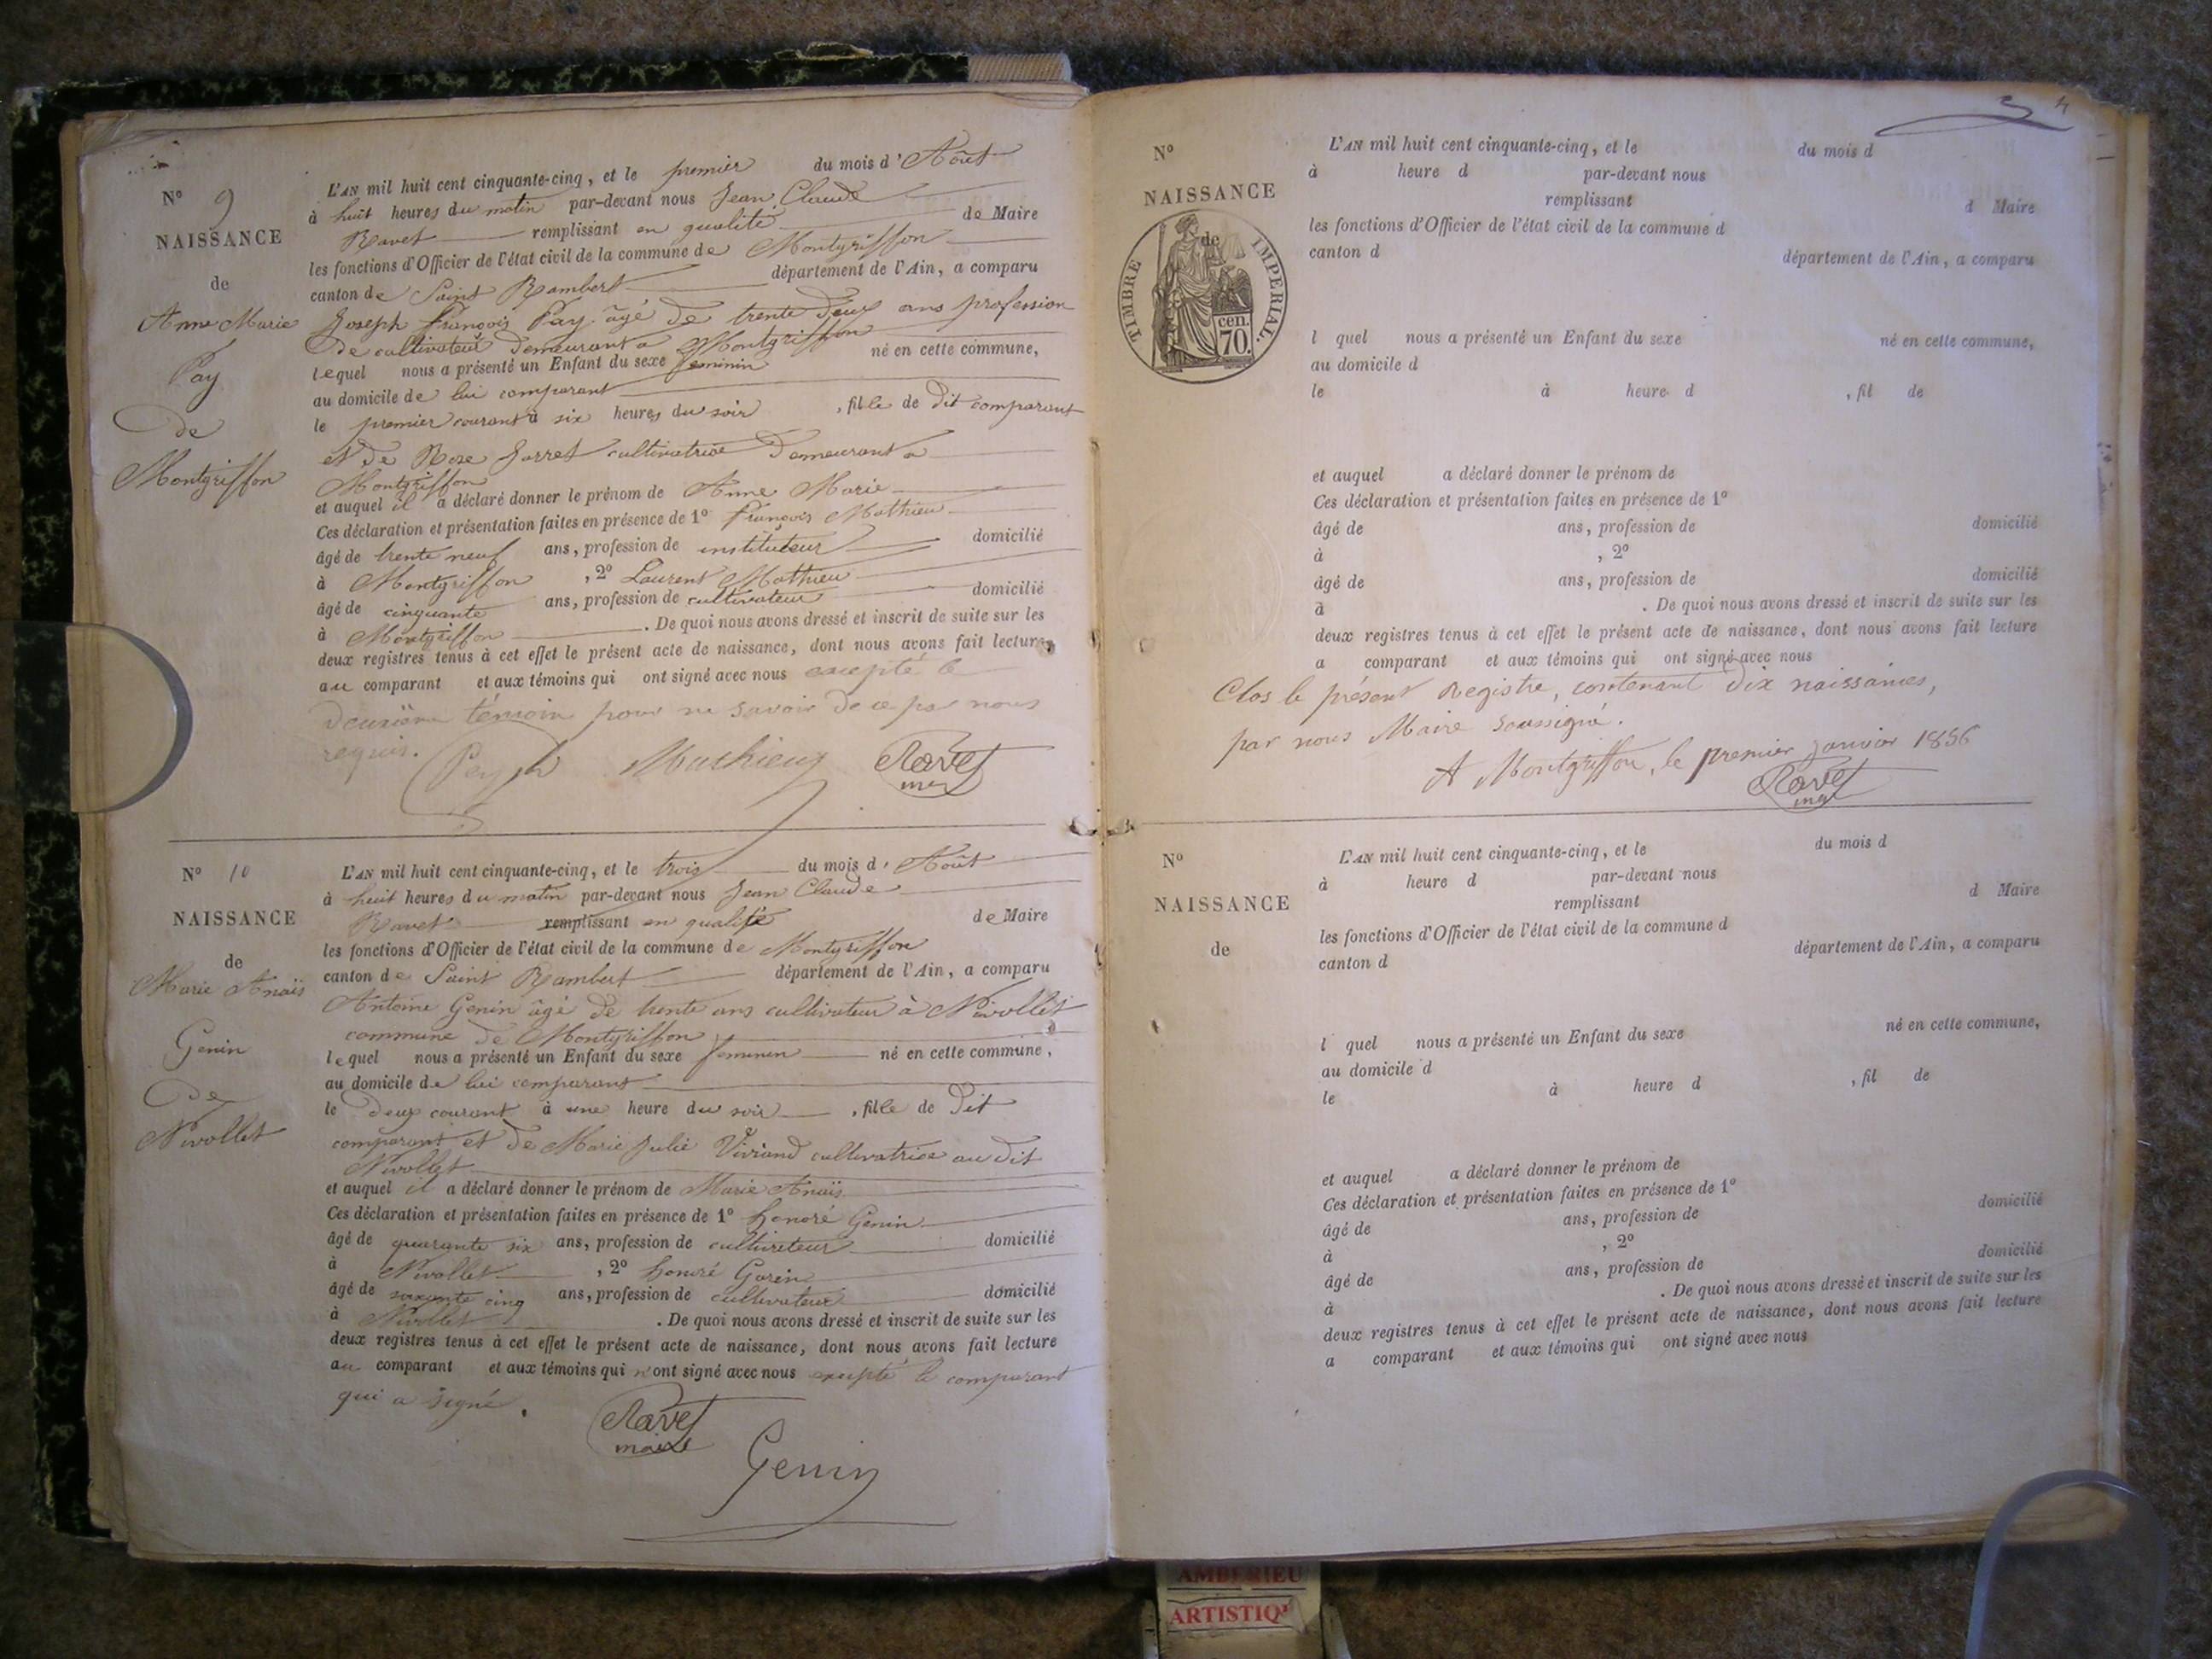 N° 9
NAISSANCE
de
Anne Marie
Pay
de
Montgriffon
L'AN mil huit cent cinquante-cinq, et le premier du mois d'Août
à huit heures du matin par-devant nous Jean Claude
Ravet remplissant en qualité de Maire
les fonctions d'Officier de l'état civil de la commune de Montgriffon
canton de Saint Rambert département de l'Ain, a comparu
Joseph François Pay âgé de trente deux ans profession
de cultivateur demeurant a Montgriffon
lequel nous a présenté un Enfant du sexe feminin né en cette commune,
au domicile de lui comparant
le premier courant à six heures du soir, fille de dit comparant
et de Rose Jarret cultivatrice demeurant a
Montgriffon
et auquel il a déclaré donner le prénom de Anne Marie
Ces déclaration et présentation faites en présence de 1° François Mathieu
âgé de trente neuf ans, profession de instituteur domicilié
à Montgriffon, 2° Laurent Mathieu
âgé de cinquante ans, profession de cultivateur domicilié
à Montgriffon. De quoi nous avons dressé et inscrit de suite sur les
deux registres tenus à cet effet le présent acte de naissance, dont nous avons fait lecture,
au comparant et aux témoins qui ont signé avec nous excepté le
deuxième témoin pour ne savoir de ce par nous
requis.
Mathieu Ravet
N° 10
NAISSANCE
de
Marie Anaïs
Genin
de
Nivollet
L'AN mil huit cent cinquante-cinq, et le trois du mois d'Août
à huit heures du matin par-devant nous Jean Claude
Ravet remplissant en qualité de Maire
les fonctions d'Officier de l'état civil de la commune de Montgriffon
canton de Saint Rambert département de l'Ain, a comparu
Antoine Genin âgé de trente ans cultivateur à Nivollet
commune de Montgriffon
lequel nous a présenté un Enfant du sexe feminin né en cette commune,
au domicile de lui comparant
le deux courant à une heure du soir, fille de dit
comparant et de Marie Julie Viviand cultivatrice au dit
Nivollet
et auquel il a déclaré donner le prénom de Marie Anaïs
Ces déclaration et présentation faites en présence de 1° honoré Genin
âgé de quarante six ans, profession de cultivateur domicilié
à Nivollet, 2° honoré Garin
âgé de soixante cinq ans, profession de cultivateur domicilié
à Nivollet. De quoi nous avons dressé et inscrit de suite sur les
deux registres tenus à cet effet le présent acte de naissance, dont nous avons fait lecture
au comparant et aux témoins qui n'ont signé avec nous excepté le comparant
qui a signé.
Ravet
maire
Genin
4
N°
NAISSANCE
de
TIMBRE IMPERIAL.
70.
cen.
L'AN mil huit cent cinquante-cinq, et le du mois d
à heure d par-devant nous
remplissant d Maire
les fonctions d'Officier de l'état civil de la commune d
canton d département de l'Ain, a comparu
l quel nous a présenté un Enfant du sexe né en cette commune,
au domicile d
le à heure d, fil de
et auquel a déclaré donner le prénom de
Ces déclaration et présentation faites en présence de 1°
âgé de ans, profession de domicilié
à, 2°
âgé de ans, profession de domicilié
à. De quoi nous avons dressé et inscrit de suite sur les
deux registres tenus à cet effet le présent acte de naissance, dont nous avons fait lecture
a comparant et aux témoins qui ont signé avec nous
Clos le présent Registre, contenant dix naissances,
par nous Maire soussigné.
A Montgriffon, le premier janvier 1856
Ravet
N°
NAISSANCE
de
L'AN mil huit cent cinquante-cinq, et le du mois d
à heure d par-devant nous
remplissant d Maire
les fonctions d'Officier de l'état civil de la commune d
canton d département de l'Ain, a comparu
l quel nous a présenté un Enfant du sexe né en cette commune,
au domicile d
le à heure d, fil de
et auquel a déclaré donner le prénom de
Ces déclaration et présentation faites en présence de 1°
âgé de ans, profession de domicilié
à, 2°
âgé de ans, profession de domicilié
à. De quoi nous avons dressé et inscrit de suite sur les
deux registres tenus à cet effet le présent acte de naissance, dont nous avons fait lecture
a comparant et aux témoins qui ont signé avec nous
AMBERIEU
ARTISTIQ